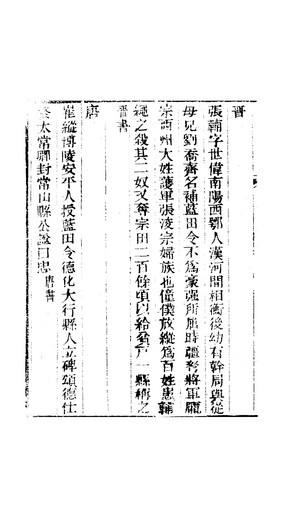 晉
張輔字世偉南陽西鄂人漢河間相衡後幼有幹局與從
母兄劉喬齊名補藍田令不為豪强所屈時彊弩將軍龐
宗西州大姓護軍張淩宗婦族也僮僕放縱為百姓患輔
繩之殺其二奴又奪宗田二百餘頃以給貧戶一縣稱之
晉書
唐
崔縱博陵安平人授藍田令德化大行縣人立碑頌德仕
至太常卿封常山縣公諡曰忠 唐書